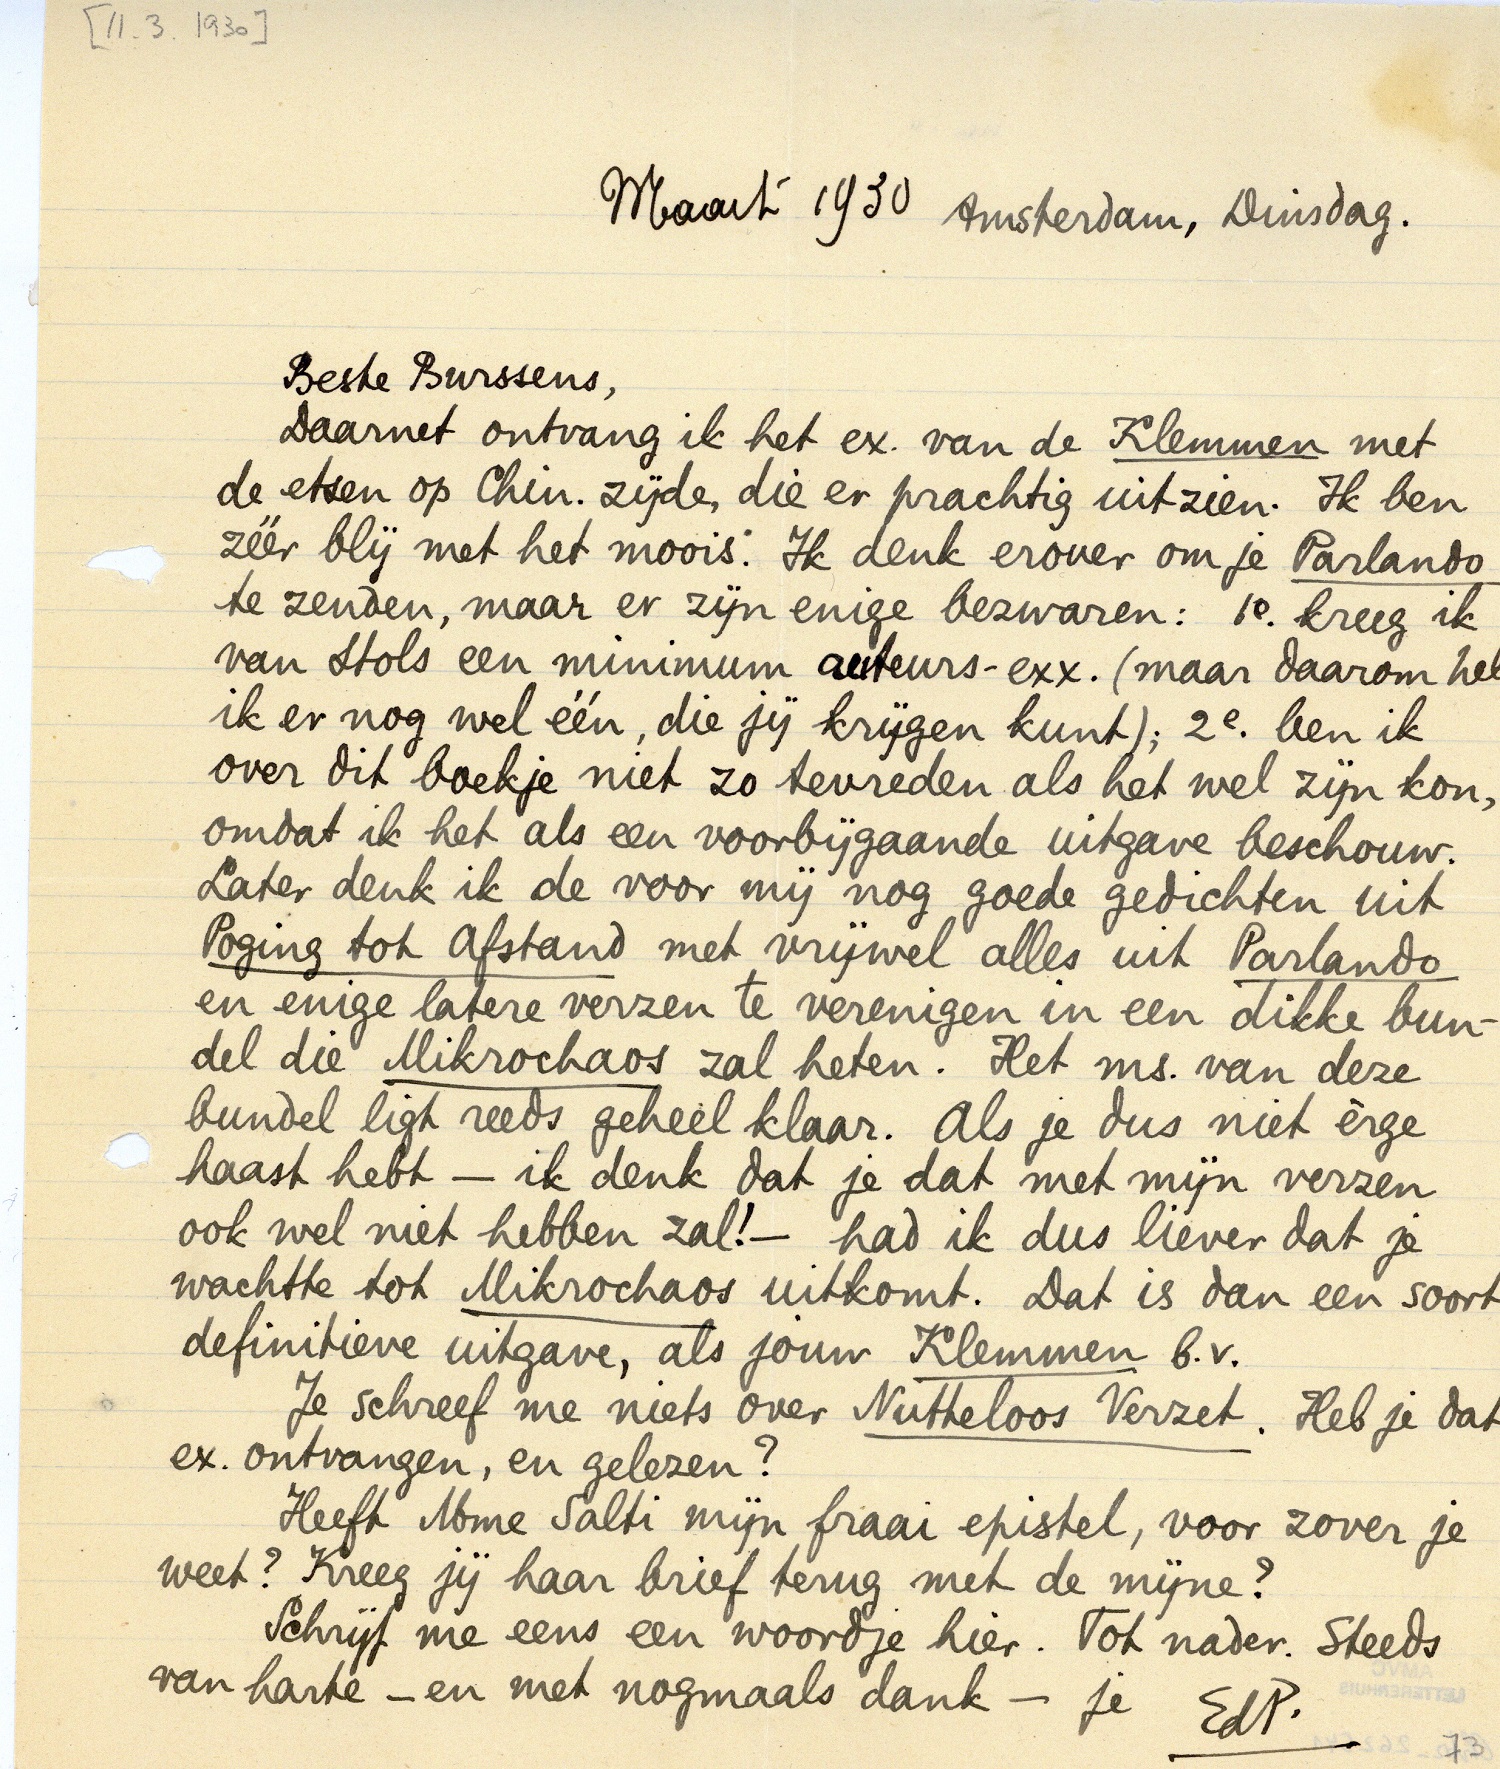 [11.3.1930]
Maart 1930 Amsterdam, Dinsdag.
Beste Burssens,
Daarnet ontvang ik het ex. van de Klemmen met
de etsen op Chin. zijde, die er prachtig uitzien. Ik ben
zéér blij met het moois. Ik denk erover om je Parlando
te zenden, maar er zijn enige bezwaren: 1e. kreeg ik
van Stols een minimum auteurs-exx. (maar daarom heb
ik er nog wel één, die jij krijgen kunt); 2e. ben ik
over dit boekje niet zo tevreden als het wel zijn kon,
omdat ik het als een voorbijgaande uitgave beschouw.
Later denk ik de voor mij nog goede gedichten uit
Poging tot Afstand met vrijwel alles uit Parlando
en enige latere verzen te verenigen in een dikke bun-
del die Mikrochaos zal heten. Het ms. van deze
bundel ligt reeds geheel klaar. Als je dus niet èrge
haast hebt – ik denk dat je dat met mijn verzen
ook wel niet hebben zal! – had ik dus liever dat je
wachtte tot Mikrochaos uitkomt. Dat is dan een soort
definitieve uitgave, als jouw Klemmen b.v.
Je schreef me niets over Nutteloos Verzet. Heb je dat
ex. ontvangen, en gelezen?
Heeft Mme Salti mijn fraai epistel, voor zover je
weet? Kreeg jij haar brief terug met de mijne?
Schrijf me eens een woordje hier. Tot nader. Steeds
van harte – en met nogmaals dank – je EdP.
AMVC
LETTERENHUIS
73